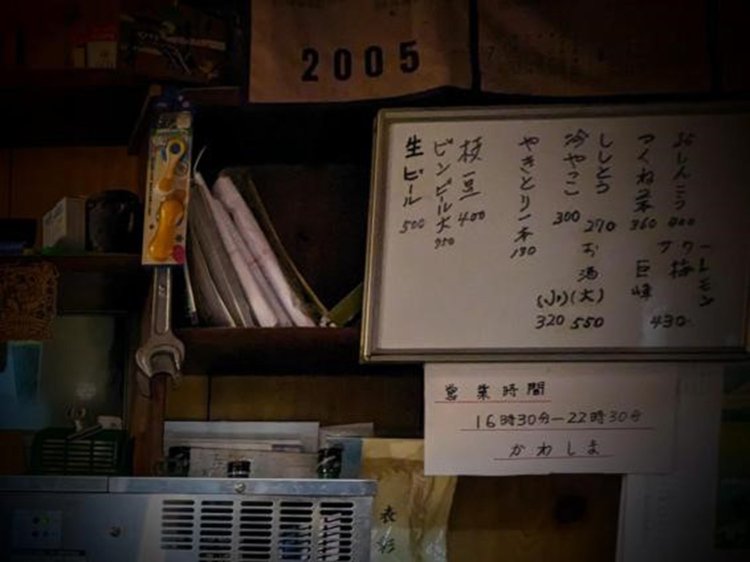 2005
おしんこう 300
つくね2本 360
ししとう 270
冷やっこ 300
やきとり一本 130
枝豆 400
ビンビール大 950
生ビール 500
サワー
レモン
梅
巨峰
430
お酒
(大) 550
(小) 320
営業時間
16時30分—22時30分
かわしま
表彰